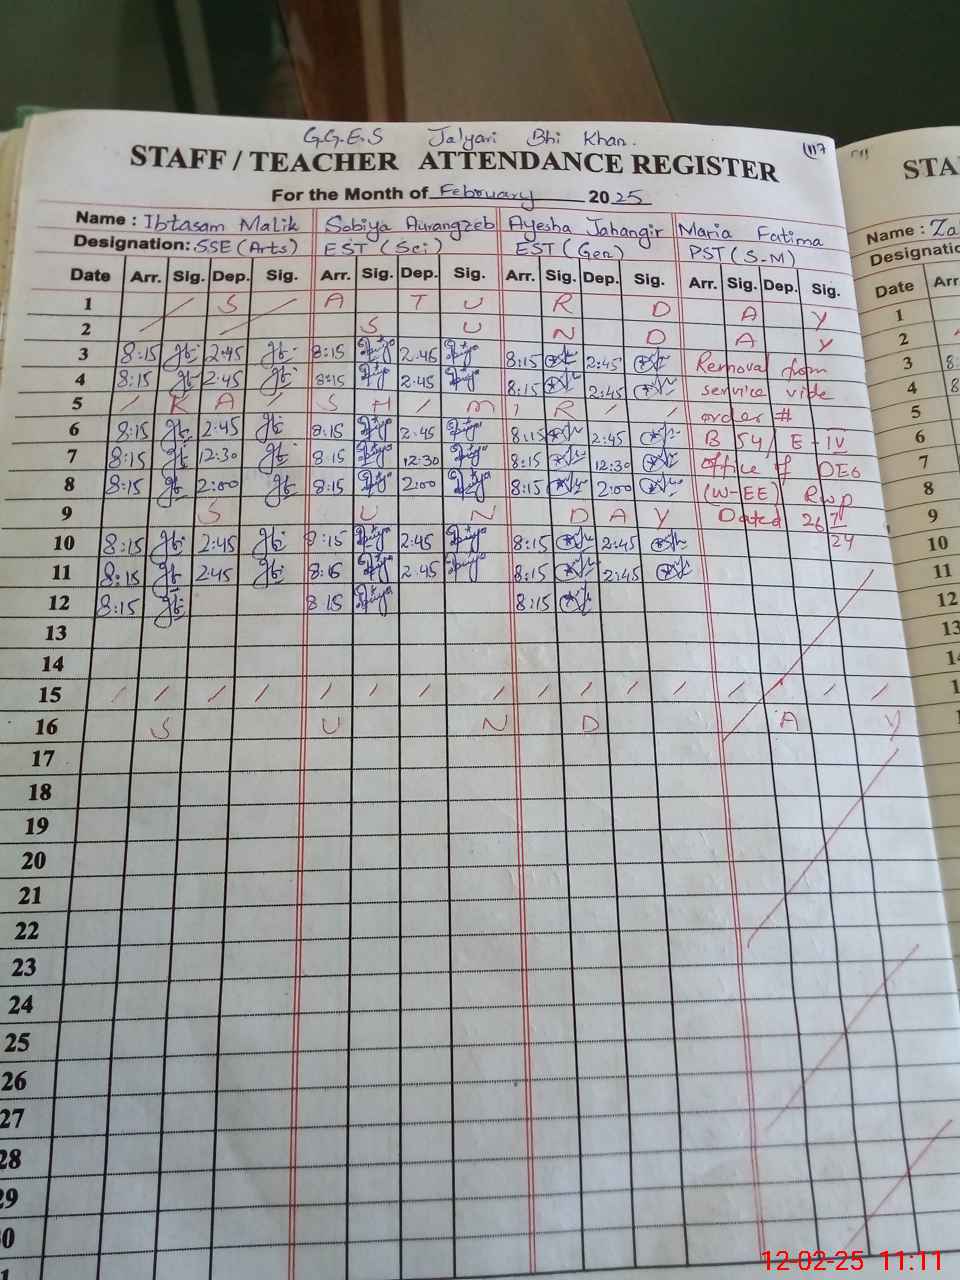 G.G.E.S Jalyari Bhi Khan.
117
STAFF / TEACHER ATTENDANCE REGISTER
For the Month of February 2025
Name : Ibtasam Malik Sobiya Aurangzeb Ayesha Jahangir Maria Fatima
Designation: SSE (Arts) EST (Sci) EST (Gen) PST (S-M)
Date Arr. Sig. Dep. Sig. Arr. Sig. Dep. Sig. Arr. Sig. Dep. Sig. Arr. Sig. Dep. Sig.
1 / S / A T U R D A Y
2 / / S U N D A Y
3 8:15 2:45 8:15 2:45 8:15 2:45 Removal from
4 8:15 2:45 8:15 2:45 8:15 2:45 service vide
5 / K A / S H / M I R / / order #
6 8:15 2:45 8:15 2:45 8:15 2:45 B 54/ E-IV
7 8:15 12:30 8:15 12:30 8:15 12:30 office of DEO
8 8:15 2:00 8:15 2:00 8:15 2:00 (W-EE) Rwp
9 S U N D A Y Dated 26/7/24
10 8:15 2:45 8:15 2:45 8:15 2:45
11 8:15 2:45 8:15 2:45 8:15 2:45
12 8:15 8:15 8:15
13
14
15 / / / / / / / / / / / / / / /
16 S U N D A Y
17
18
19
20
21
22
23
24
25
26
27
28
29
STA
Name :
Designatio
Date Arr
1
2
3 8:
4 8
5
6
7
8
9
10
11
12
13
12-02-25 11:11